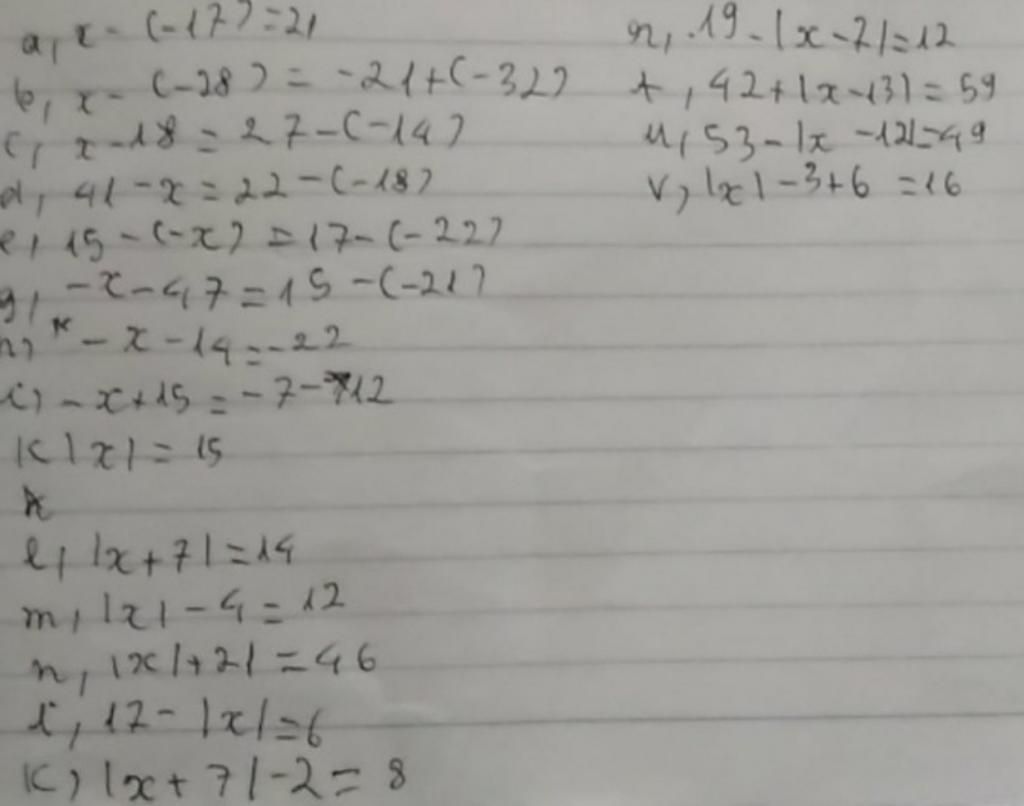 a, x - (-17) = 21
b, x - (-28) = -21 + (-32)
c, x - 18 = 27 - (-14)
d, 41 - x = 22 - (-18)
e, 15 - (-x) = 17 - (-22)
g, -x - 47 = 15 - (-21)
h, - x - 14 = -22
i) - x + 15 = -7 - 12
k |x| = 15
l, |x + 7| = 14
m, |x| - 4 = 12
n, |x| + 21 = 46
i, 17 - |x| = 6
k) |x + 7| - 2 = 8
n, 19 - |x - 7| = 12
t, 42 + |x - 13| = 59
u, 53 - |x - 12| = 49
v, |x| - 3 + 6 = 16